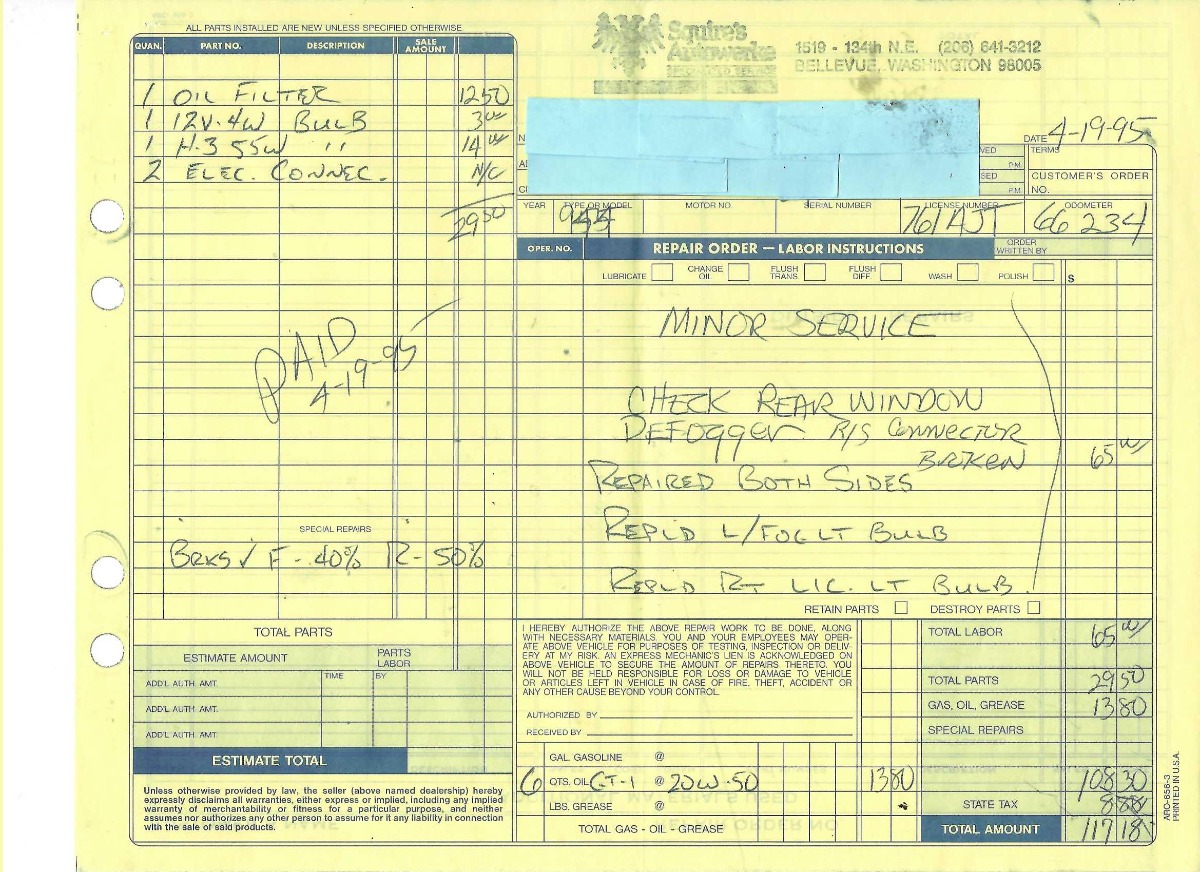 ALL PARTS INSTALLED ARE NEW UNLESS SPECIFIED OTHERWISE
Squire's
Autowerke
1519 - 134th N.E. (206) 641-3212
BELLEVUE, WASHINGTON 98005
QUAN. PART NO. DESCRIPTION SALE AMOUNT
1 OIL FILTER 12 50
1 12V-4W BULB 3 00
1 H-3 55W " 14 00
2 ELEC. CONNEC. N/C
29 50
PAID
4-19-95
SPECIAL REPAIRS
BRKS ✓ F - 40% R - 50%
TOTAL PARTS
ESTIMATE AMOUNT PARTS LABOR
ADD'L AUTH. AMT. TIME BY
ADD'L AUTH. AMT.
ADD'L AUTH. AMT.
ESTIMATE TOTAL
Unless otherwise provided by law, the seller (above named dealership) hereby
expressly disclaims all warranties, either express or implied, including any implied
warranty of merchantability or fitness for a particular purpose, and neither
assumes nor authorizes any other person to assume for it any liability in connection
with the sale of said products.
DATE 4-19-95
TERMS
P.M.
CUSTOMER'S ORDER
NO.
P.M.
YEAR TYPE OR MODEL MOTOR NO. SERIAL NUMBER LICENSE NUMBER ODOMETER
761AJT 66 234
OPER. NO. REPAIR ORDER — LABOR INSTRUCTIONS ORDER WRITTEN BY
LUBRICATE CHANGE OIL FLUSH TRANS. FLUSH DIFF. WASH POLISH $
MINOR SERVICE
CHECK REAR WINDOW
DEFOGGER R/S CONNECTOR
BROKEN 65 00
REPAIRED BOTH SIDES
REPL'D L/FOG LT BULB
REPLD RT LIC. LT BULB.
RETAIN PARTS DESTROY PARTS
I HEREBY AUTHORIZE THE ABOVE REPAIR WORK TO BE DONE, ALONG
WITH NECESSARY MATERIALS. YOU AND YOUR EMPLOYEES MAY OPER-
ATE ABOVE VEHICLE FOR PURPOSES OF TESTING, INSPECTION OR DELIV-
ERY AT MY RISK. AN EXPRESS MECHANIC'S LIEN IS ACKNOWLEDGED ON
ABOVE VEHICLE TO SECURE THE AMOUNT OF REPAIRS THERETO. YOU
WILL NOT BE HELD RESPONSIBLE FOR LOSS OR DAMAGE TO VEHICLE
OR ARTICLES LEFT IN VEHICLE IN CASE OF FIRE, THEFT, ACCIDENT OR
ANY OTHER CAUSE BEYOND YOUR CONTROL.
AUTHORIZED BY
RECEIVED BY
GAL. GASOLINE @
6 QTS. OIL GT-1 @ 20W-50 13 80
LBS. GREASE @
TOTAL GAS - OIL - GREASE
TOTAL LABOR 65 00
TOTAL PARTS 29 50
GAS, OIL, GREASE 13 80
SPECIAL REPAIRS
108 30
STATE TAX 8 88
TOTAL AMOUNT 117 18
ARO-656-3
PRINTED IN U.S.A.